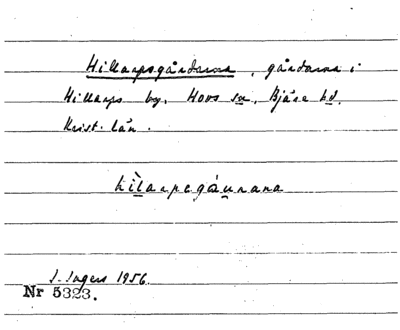 Hillarpsgårdarna, gårdarna i
Hillarps by, Hovs sn, Bjäre hd,
Krist. län.
hìlarpsgáʉnana
I. Ingers 1956.
Nr 5323.